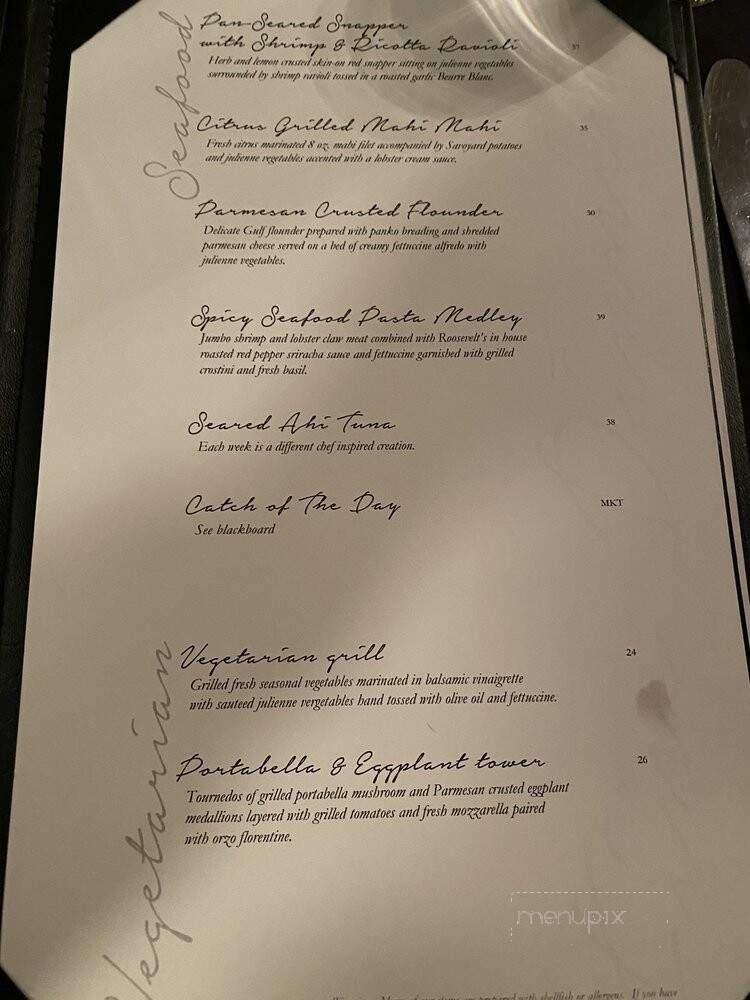 Seafood
Pan-Seared Snapper
with Shrimp & Ricotta Ravioli 37
Herb and lemon crusted skin-on red snapper sitting on julienne vegetables
surrounded by shrimp ravioli tossed in a roasted garlic Beurre Blanc.
Citrus Grilled Mahi Mahi 35
Fresh citrus marinated 8 oz. mahi filet accompanied by Savoyard potatoes
and julienne vegetables accented with a lobster cream sauce.
Parmesan Crusted Flounder 30
Delicate Gulf flounder prepared with panko breading and shredded
parmesan cheese served on a bed of creamy fettuccine alfredo with
julienne vegetables.
Spicy Seafood Pasta Medley 39
Jumbo shrimp and lobster claw meat combined with Roosevelt's in house
roasted red pepper sriracha sauce and fettuccine garnished with grilled
crostini and fresh basil.
Seared Ahi Tuna 38
Each week is a different chef inspired creation.
Catch of The Day MKT
See blackboard
Vegetarian
Vegetarian grill 24
Grilled fresh seasonal vegetables marinated in balsamic vinaigrette
with sauteed julienne vergetables hand tossed with olive oil and fettuccine.
Portabella & Eggplant tower 26
Tournedos of grilled portabella mushroom and Parmesan crusted eggplant
medallions layered with grilled tomatoes and fresh mozzarella paired
with orzo florentine.
menupix
prepared with shellfish or allergens. If you have